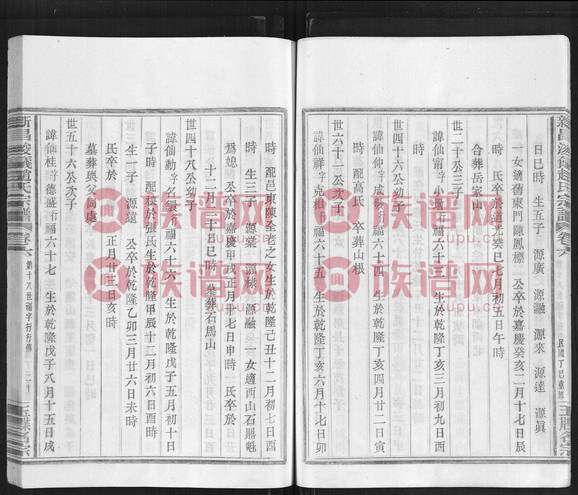 新昌浚儀趙氏宗譜 卷六
民國丁巳重修
玉牒名宗
日巳時 生五子 源廣 源融 源來 源達 源眞
一女適蒨東門陳鳳標 公卒於嘉慶癸亥二月初二日
時 氏卒於道光癸巳七月初五日午時
合葬岳家山
世二公三子
諱仙甯字小 行福六十三 生於乾隆丁亥三月初九日酉
時 配高氏 公卒 葬山根
世六十二公幼子
諱仙祥字克相行福六十五 生於乾隆丁亥四月廿二日寅
時 配邑東陳全老之女生於乾隆己丑十二月初七日酉
時 生三子 源業 源祿 源融 一女適西山石鼎魁
爲媳 公卒於嘉慶甲戌正月十七日申時 氏卒於
十二月二十日巳時 墓葬石馬山
世四十八公幼子
諱仙勳字名 行福六十六 生於乾隆戊子五月初十日
時 配 張氏生於乾隆甲辰十二月初六日酉時
生一子 源遠 公卒於乾隆乙卯三月廿六日未時
氏卒於 正月廿三日亥時
墓葬與父同處
世五十六公次子
諱仙桂字德盛行福六十七 生於乾隆戊子八月十五日戌
新昌浚儀趙氏宗譜 卷六 第十八世福字行行傳
玉牒名宗
族谱网
zupu.cn